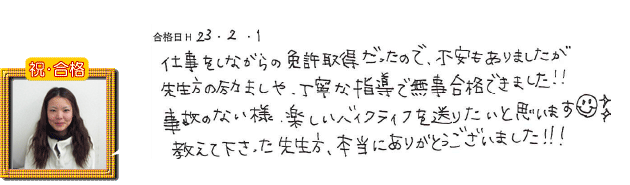 合格日 H 23.2.1
祝・合格
仕事をしながらの免許取得だったので、不安もありましたが
先生方の励ましや、丁寧な指導で無事合格できました!!
事故のない様、楽しいバイクライフを送りたいと思います
教えて下さった先生方、本当にありがとうございました!!!